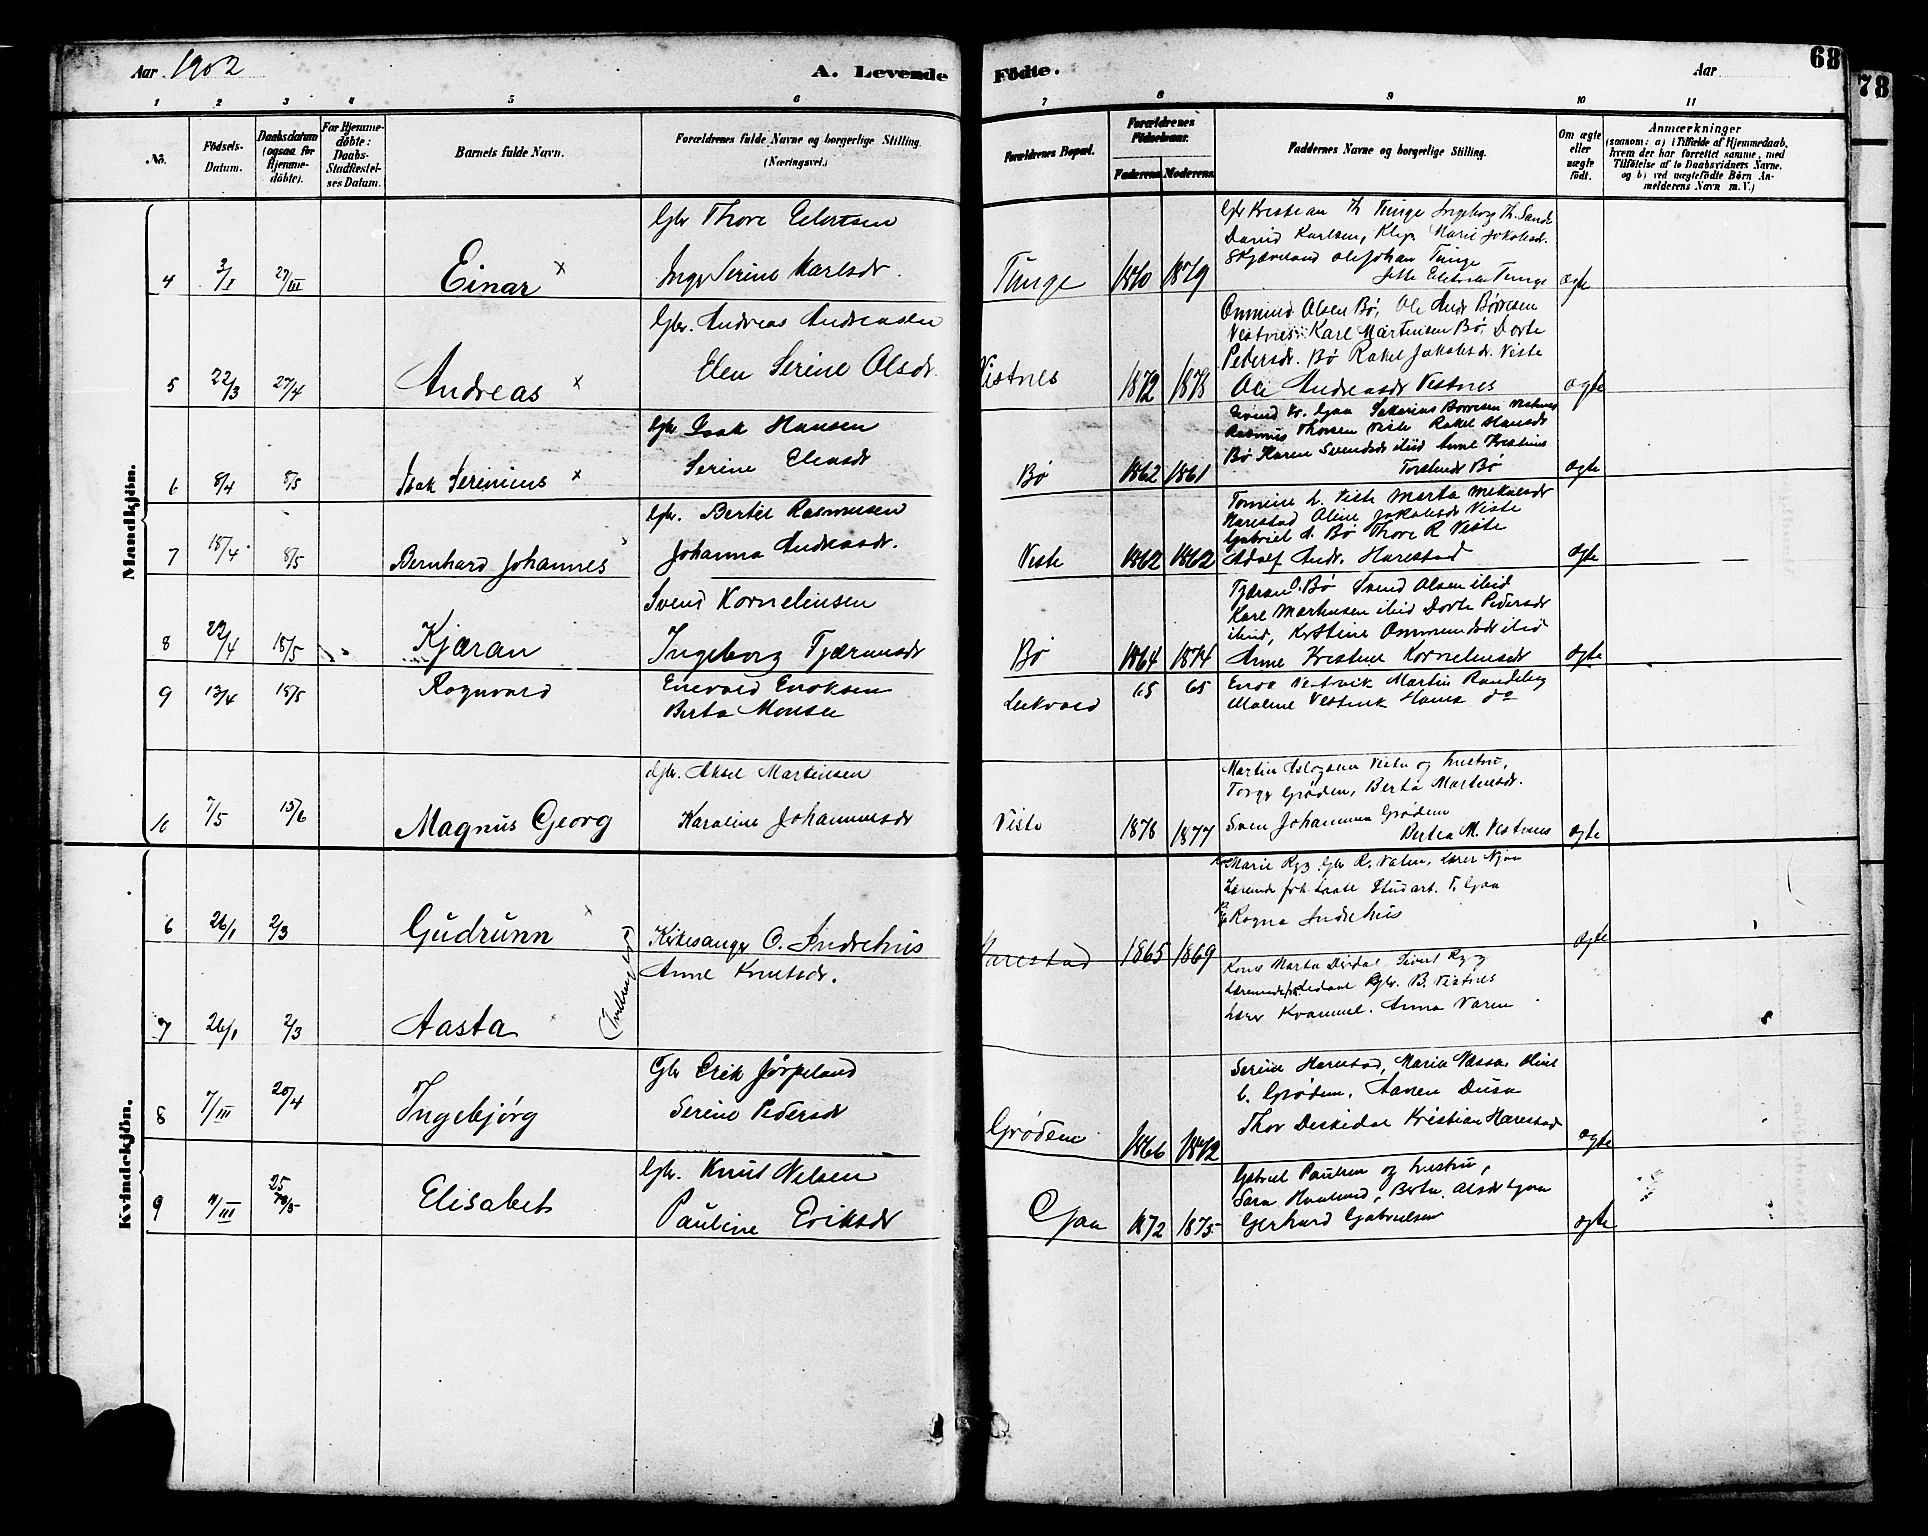 Aar 1902
A. Levende
Födte.
Aar
68
78
1 2 3 4 5 6 7 8 9 10 11
No.
Födsels-
Datum.
Daabsdatum
(ogsaa for
Hjemme-
döbte).
For Hjemme-
döbte:
Daabs-
Stadfæstel-
ses Datum.
Barnets fulde Navn.
Forældrenes fulde Navne og borgerlige Stilling.
(Næringsvei.)
Forældrenes Bopæl.
Forældrenes
Födselsaar.
Faderens Moderens
Faddernes Navne og borgerlige Stilling.
Om ægte
eller
uægte
födt.
Anmærkninger
(saasom: a) i Tilfælde af Hjemmedaab,
hvem der har forrettet samme, med
Tilföielse af to Daabsvidners Navne,
og b) ved uægtefödte Börn An-
melderens Navn m. V.)
Mandkjön.
4 3/I 27/III Einar x
Gbr Thore Eilertsen
Inge Serine Karlsdr.
Tunge 1870 1879
Gbr Kristian Th Tunge Ingeborg Th. Sande
David Karlsen, Klep. Marie Jakobsd.
Skjæveland Ole Johan Tunge
Tunge
ægte
5 22/3 27/4 Andreas x
Gbr. Andreas Andreassen
Elen Serine Olsdr.
Vistnes 1872 1878
Ommund Olsen Bø, Ole Andr Børresen
Vestnes Karl Martinsen Bø, Dorte
Pedersdr. Bø Rakel Jakobsdr. Viste
Ole Andreasdr Vestnes
ægte
6 8/4 8/5 Isak Serinius x
Gbr Isak Hansen
Serine Eleasdr
Bø 1862 1861
Svend Kr. Gjaa Sakarias Børresen Vestnes
Rasmus Thorsen Viste Rakel Hansdr
Bø Karen Svendsdr ibid Anne Kristine
Torstendr Bø
ægte
7 18/4 8/5 Bernhard Johannes
Gbr. Bertil Rasmussen
Johanna Andreasdr.
Viste 1862 1862
Tomine L. Viste Marta Mikalsdr
Harestad Oline Jakobsdr Viste
Gabriel A. Bø Thore R Viste
Adolf Andr. Harestad
ægte
8 29/4 18/5 Kjæran
Svend Kornelinsen
Ingeborg Tjæransdr
Bø 1864 1874
Tjæran O. Bø Svend Olsen ibid
Karl Martinsen ibid Dorte Pedersdr
ibid, Kristine Ommundsdr ibid
Anne Kristine Kornelinsdr
ægte
9 13/4 18/5 Rognvald
Enevald Enoksen
Berta Monsen
Leikvold 65 65
Enok Vestvik Martin Randeberg
Malene Vestvik Hans do
10 7/5 15/6 Magnus Georg
Gbr. Aksel Martinsen
Karoline Johannesdr
Viste 1878 1877
Martin Aslagsen Viste og hustru,
Torger Grødem, Berta Martinsdr.
Sven Johannes Grødem
Bertea M. Vestnes
ægte
Kvindekjön.
6 26/1 2/3 Gudrunn x
Kirkesanger O. Indrehus
Anne Knutsdr.
(Tvillinger)
Harestad 1865 1869
Marie Rygg. Gbr R. Valen, Lærer Njaa
Stud art. T. Gjaa
Ragna Indrehus
ægte
7 26/1 2/3 Aasta
Kone Marta Dirdal Sivert Rygg
Gbr. B. Vistnes
Lærer Kvammel. Anna Varen
8 7/III 20/4 Ingebjörg
Gbr Erik Jørpeland
Serine Pedersdr
Grødem 1866 1872
Serine Harestad, Maria Vassa Oline
C. Grødem. Aanen Dusa
Thor Deskedal Kristian Harestad
ægte
9 9/III 25/5 Elisabet
Gbr. Knut Nilsen
Pauline Eriksdr
Gjaa 1872 1875
Gabriel Paulsen og hustru,
Sara Haaland, Berta. Olsdr Gjaa
Gerhard Gabrielsen
ægte